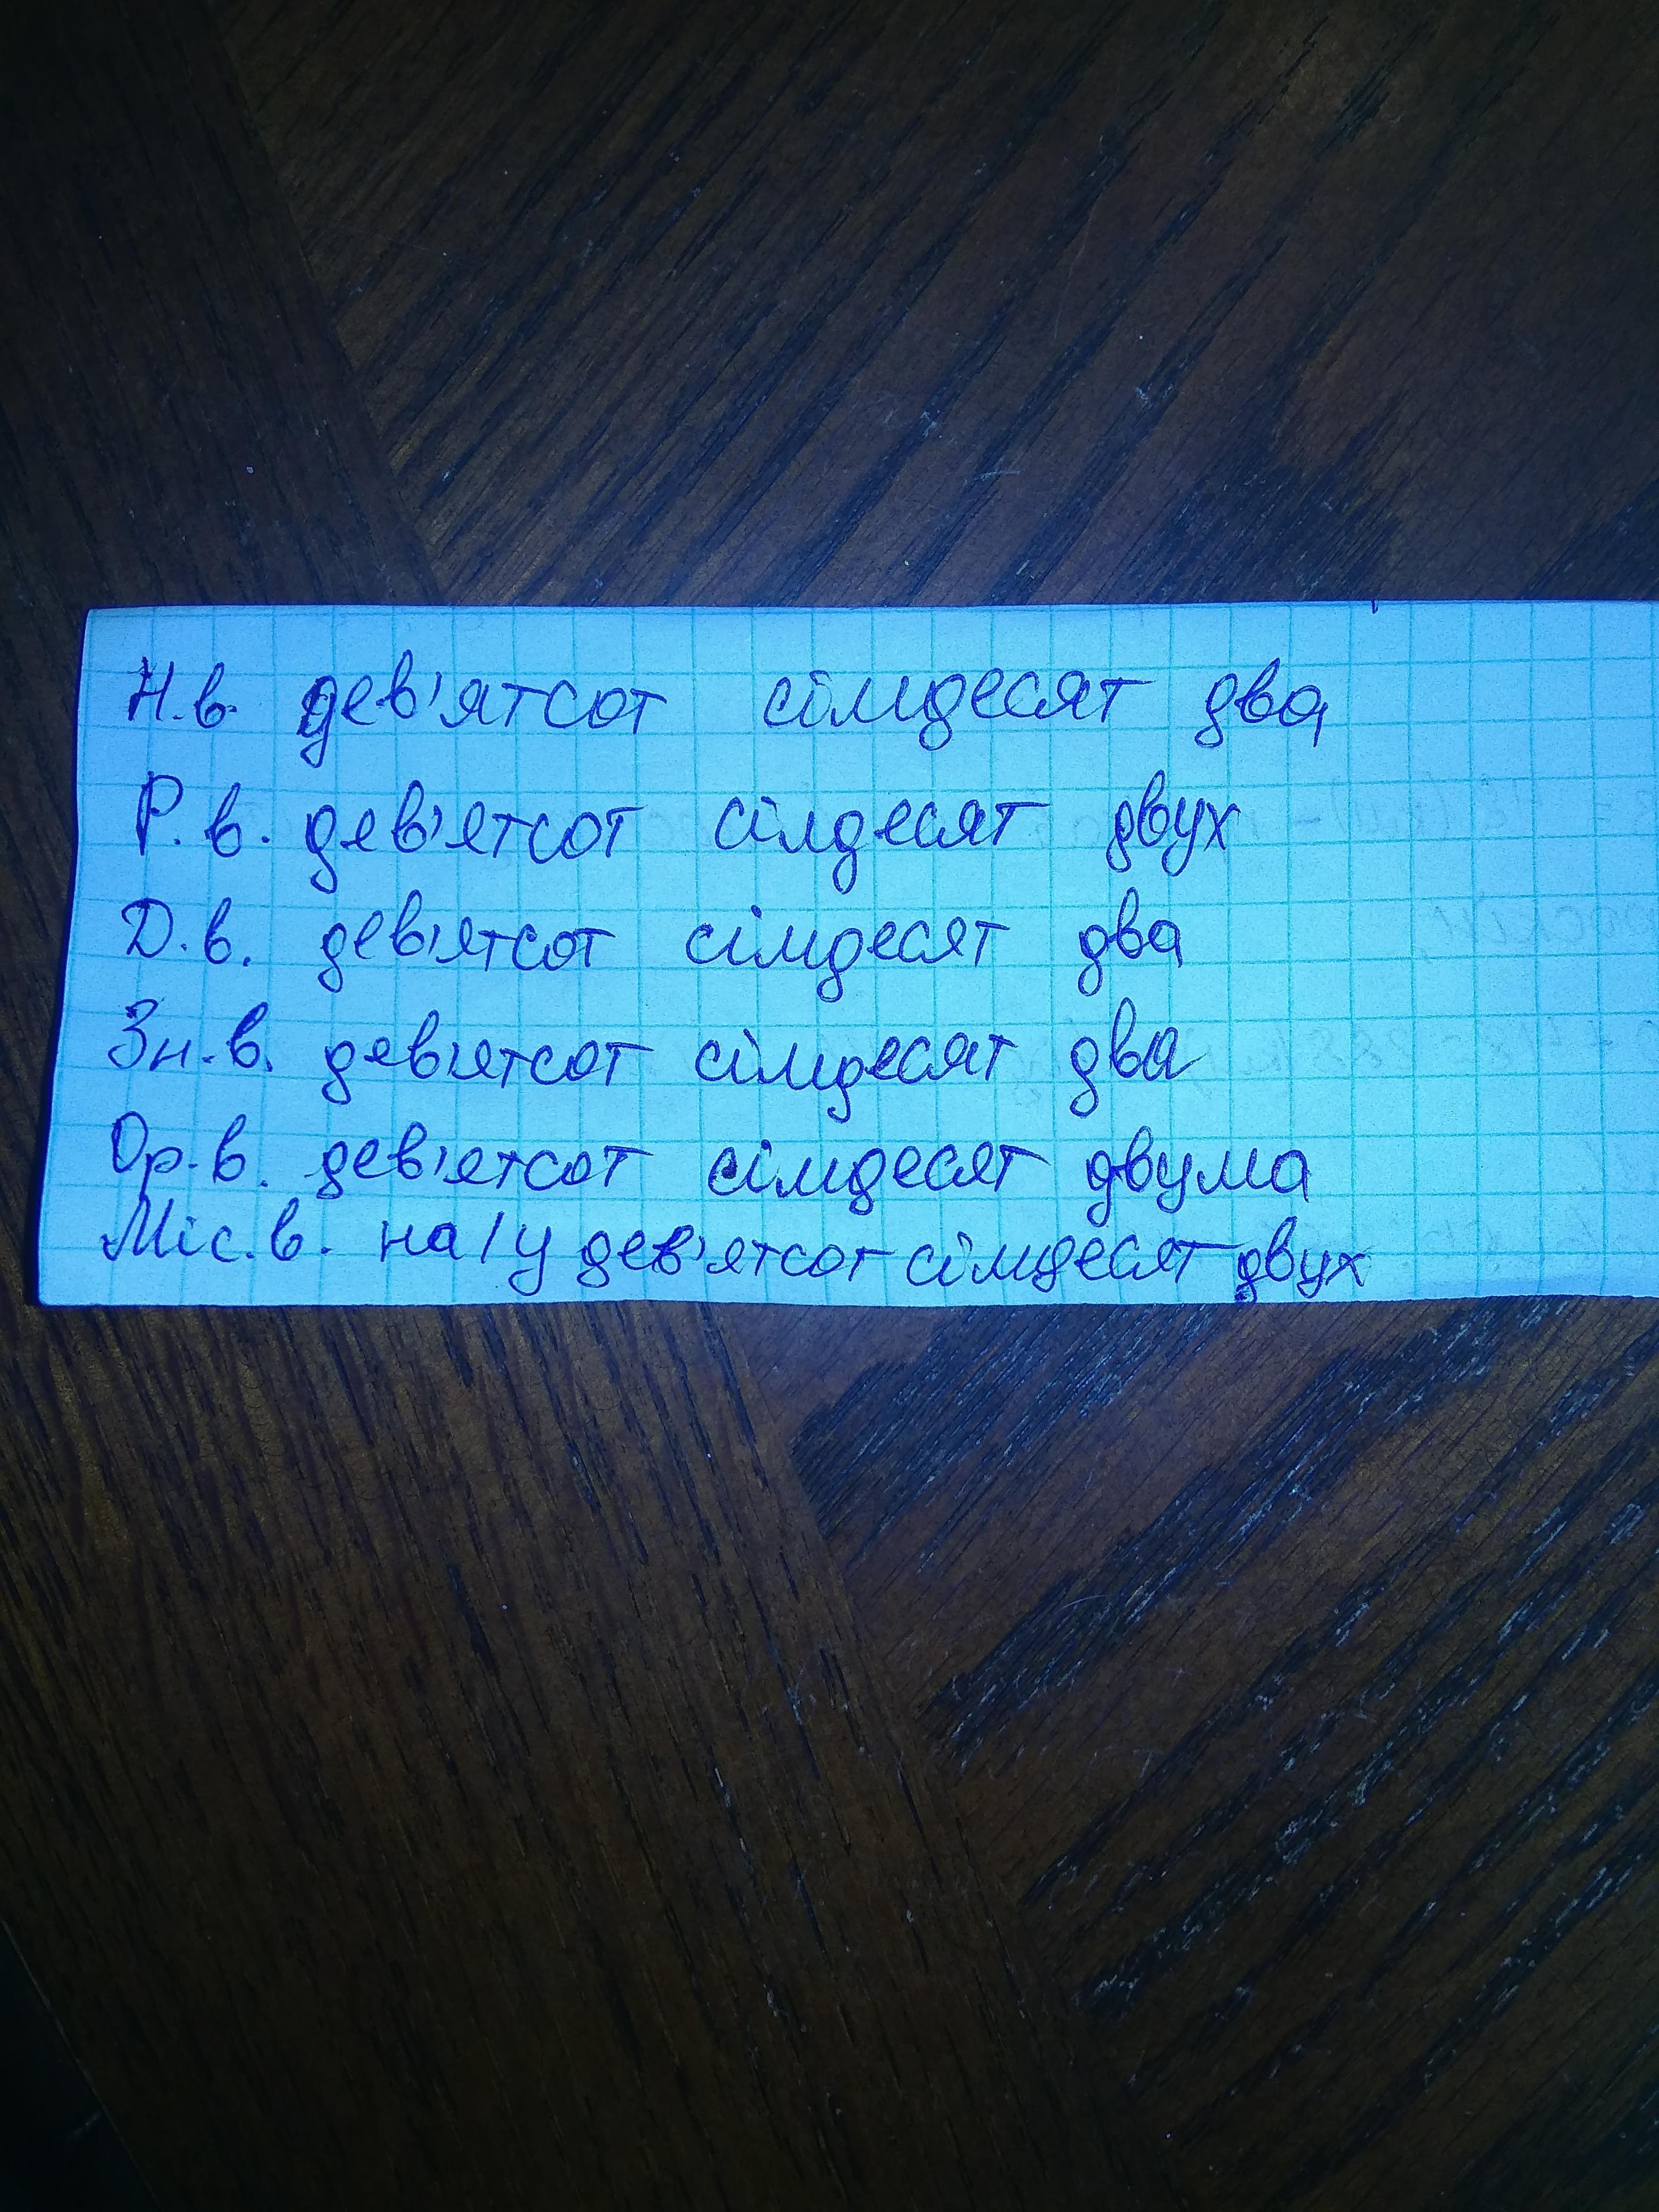 Н.в. дев'ятсот сімдесят два
Р.в. дев'ятсот сімдесят двух
Д.в. дев'ятсот сімдесят два
Зн.в. дев'ятсот сімдесят два
Ор.в. дев'ятсот сімдесят двума
Міс.в. на/у дев'ятсот сімдесят двух